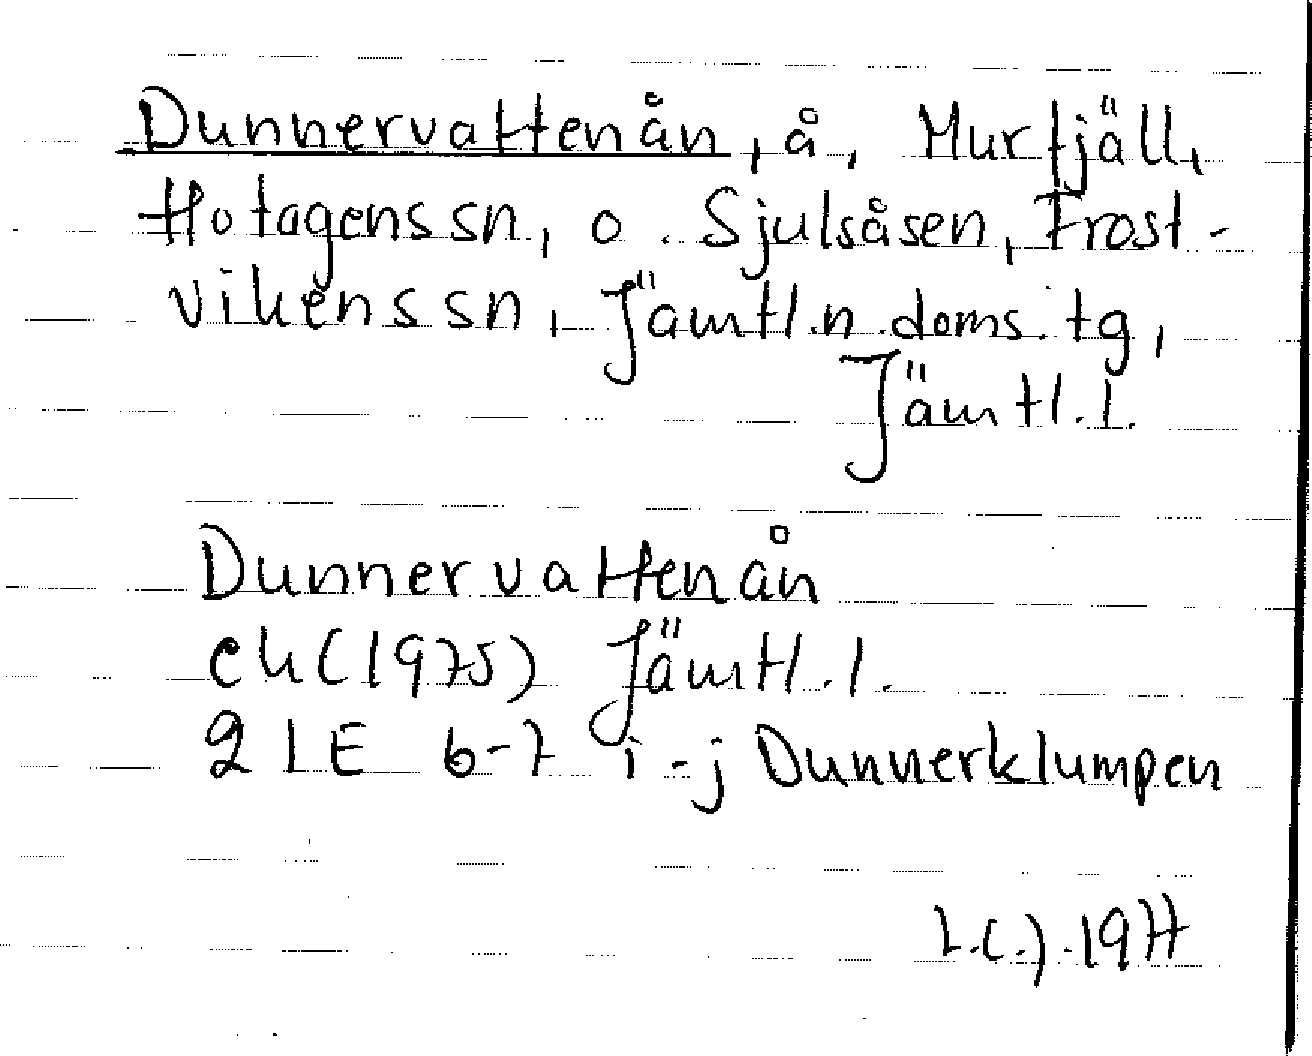 Dunnervattenån, å, Murfjäll,
Hotagens sn, o. Sjulsåsen, Frost-
vikens sn, Jämtl.n.doms.tg,
Jämtl.l.
Dunnervattenån
ek(1975) Jämtl.l.
21E 6-7 i-j Dunnerklumpen
L.C.J.1977